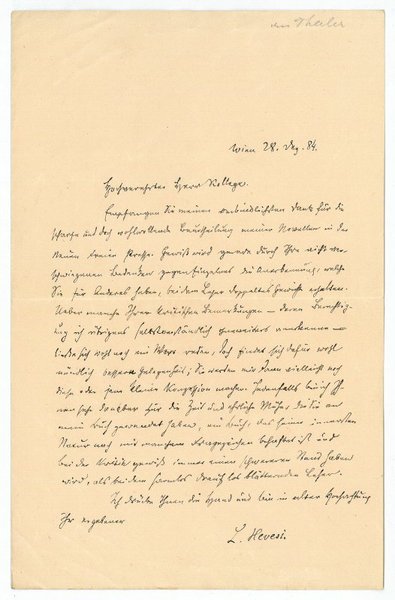 an Thaler
Wien 28. Dez. 84.
Hochverehrter Herr Kollege.
Empfangen Sie meinen verbindlichsten Dank für die
scharfe und doch wohlwollende Beurtheilung meiner Novellen in der
Neuen freien Presse. Gewiß wird gerade durch Ihre nicht ver-
schwiegenen Bedenken gegen Einzelnes die Anerkennung, welche
Sie für Anderes haben, bei dem Leser doppeltes Gewicht erhalten.
Ueber manche Ihrer kritischen Bemerkungen – deren Berechtig-
ung ich übrigens selbstverständlich anerkenne –
ließe sich wohl noch ein Wort reden; doch findet sich dafür wohl
mündlich bessere Gelegenheit; Sie werden mir dann vielleicht noch
diese oder jene kleine Konzession machen. Jedenfalls bin ich Ih-
nen sehr dankbar für die Zeit und ehrliche Mühe, die Sie an
mein Buch gewendet haben, ein Buch, das seiner innersten
Natur nach mit manchem Fragezeichen behaftet ist und
bei der Kritik gewiß immer einen schwereren Stand haben
wird, als bei dem harmlos blätternden Leser.
Ich drücke Ihnen die Hand und bin in alter Hochachtung
Ihr ergebener
L. Hevesi.